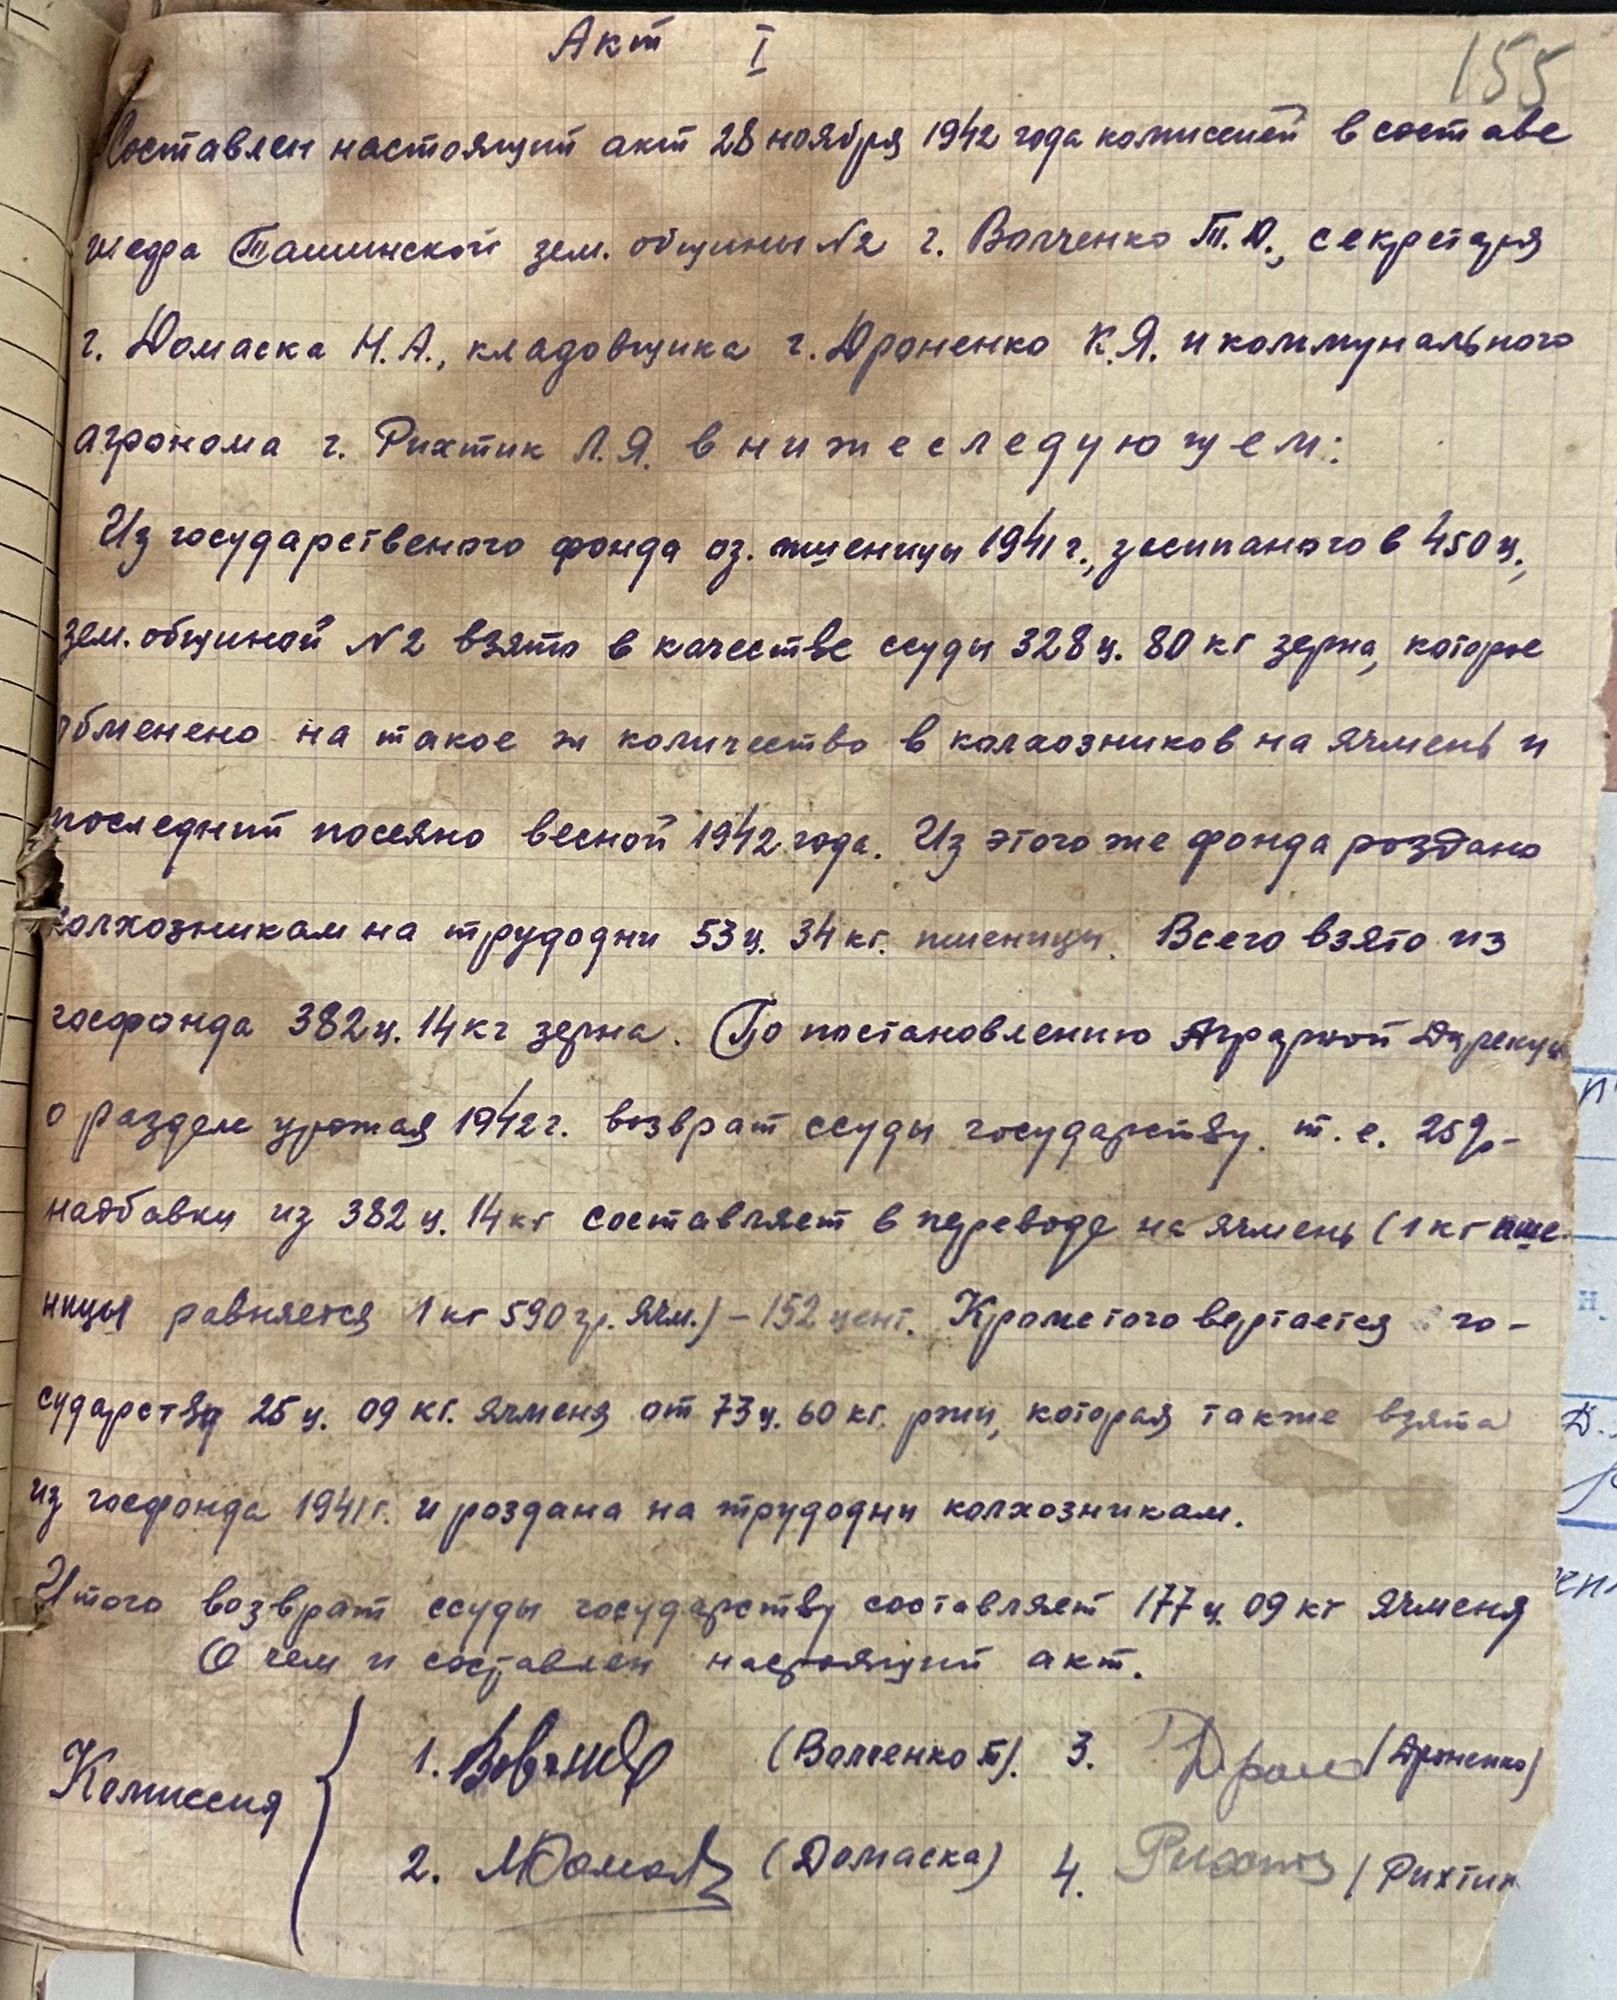 Акт I
155
Составлен настоящий акт 28 ноября 1942 года комиссией в составе
шефа Ташинской зем. общины №2 г. Волченко Т.Д., секретаря
г. Домаска Н.А., кладовщика г. Дроненко К.Я. и коммунального
агронома г. Рихтик Л.Я. в нижеследующем:
Из государственого фонда оз. пшеницы 1941 г., засипаного в 450 ц.,
зем. общиной №2 взято в качестве ссуды 328 ц. 80 кг зерна, которое
обменено на такое ж количество в колхозников на ячмень и
последний посеяно весной 1942 года. Из этого же фонда роздано
колхозникам на трудодни 53 ц. 34 кг. пшеници. Всего взято из
госфонда 382 ц. 14 кг зерна. По постановлению Аграрной Дирекци
о разделе урожая 1942 г. возврат ссуды государству. т. е. 25%-
надбавки из 382 ц. 14 кг составляет в переводе на ячмень (1 кг пше-
ницы равняется 1 кг 590 гр. ячм.) - 152 цент. Кроме того вертается го-
сударству 25 ц. 09 кг. ячменя от 73 ц. 60 кг. ржи, которая также взята
из госфонда 1941 г. и роздана на трудодни колхозникам.
Итого возврат ссуды государству составляет 177 ц. 09 кг ячменя
О чем и составлен настоящий акт.
Комиссия
1. (Волченко Т). 3. Дрон (Дроненко)
2. (Домаска) 4. Рихтик (Рихтик